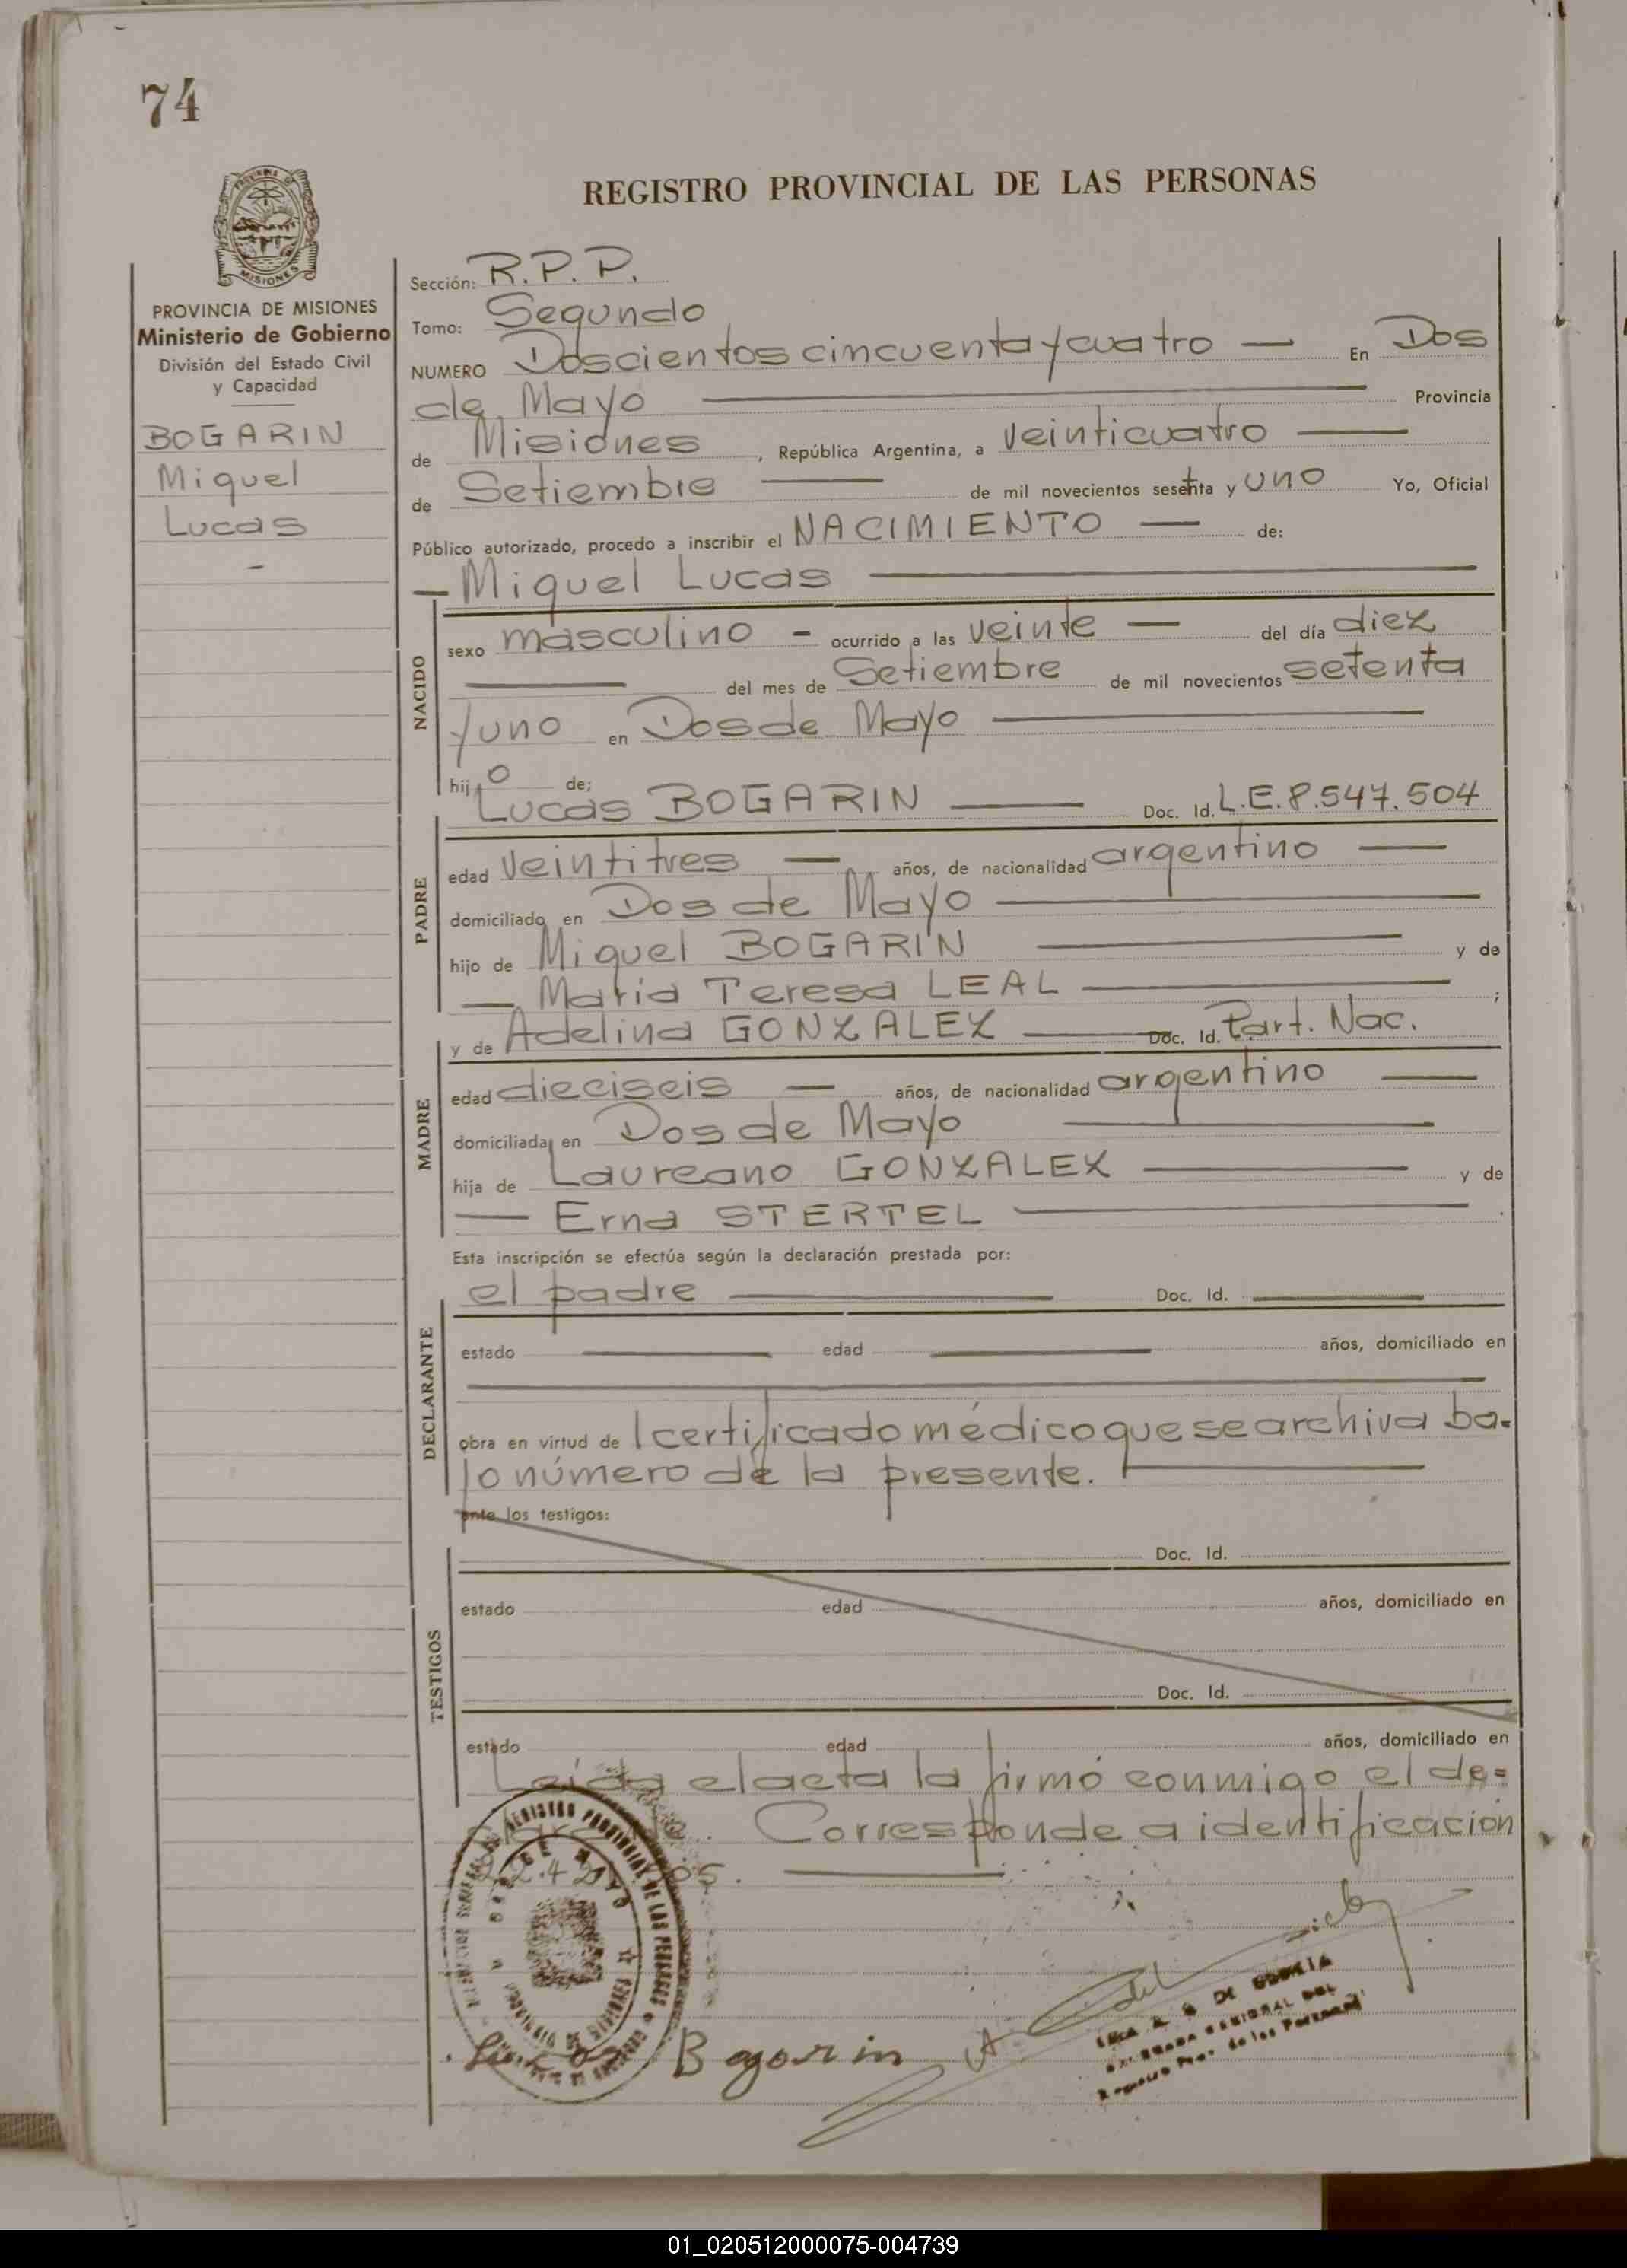 74
REGISTRO PROVINCIAL DE LAS PERSONAS
MISIONES
PROVINCIA DE MISIONES
Ministerio de Gobierno
División del Estado Civil
y Capacidad
BOGARIN
Miguel
Lucas
-
Sección: R.P.P.
Tomo: Segundo
NUMERO Doscientos cincuenta y cuatro — En Dos
de Mayo — Provincia
de Misiones, República Argentina, a veinticuatro —
de Setiembre — de mil novecientos sesenta y uno Yo, Oficial
Público autorizado, procedo a inscribir el NACIMIENTO — de:
— Miguel Lucas —
NACIDO
sexo masculino - ocurrido a las veinte — del día diez
— del mes de Setiembre de mil novecientos setenta
y uno en Dos de Mayo —
hijo de:
Lucas BOGARIN — Doc. Id. L.E. 8.547.504
PADRE
edad veintitres — años, de nacionalidad argentino —
domiciliado en Dos de Mayo —
hijo de Miguel BOGARIN — y de
— Maria Teresa LEAL — ;
y de Adelina GONZALEZ — Doc. Id. Part. Nac.
MADRE
edad dieciseis — años, de nacionalidad argentino —
domiciliada en Dos de Mayo —
hija de Laureano GONZALEZ — y de
— Erna STERTEL — .
Esta inscripción se efectúa según la declaración prestada por:
el padre — Doc. Id. —
DECLARANTE
estado — edad — años, domiciliado en
—
obra en virtud del certificado médico que se archiva ba-
jo número de la presente. —
ante los testigos:
Doc. Id.
TESTIGOS
estado edad años, domiciliado en
Doc. Id.
estado edad años, domiciliado en
Leída el acta la firmó conmigo el de=
Corresponde a identificación
—
Lucas Bogarin
DE
REGIONAL DEL
de las Personas
01_020512000075-004739